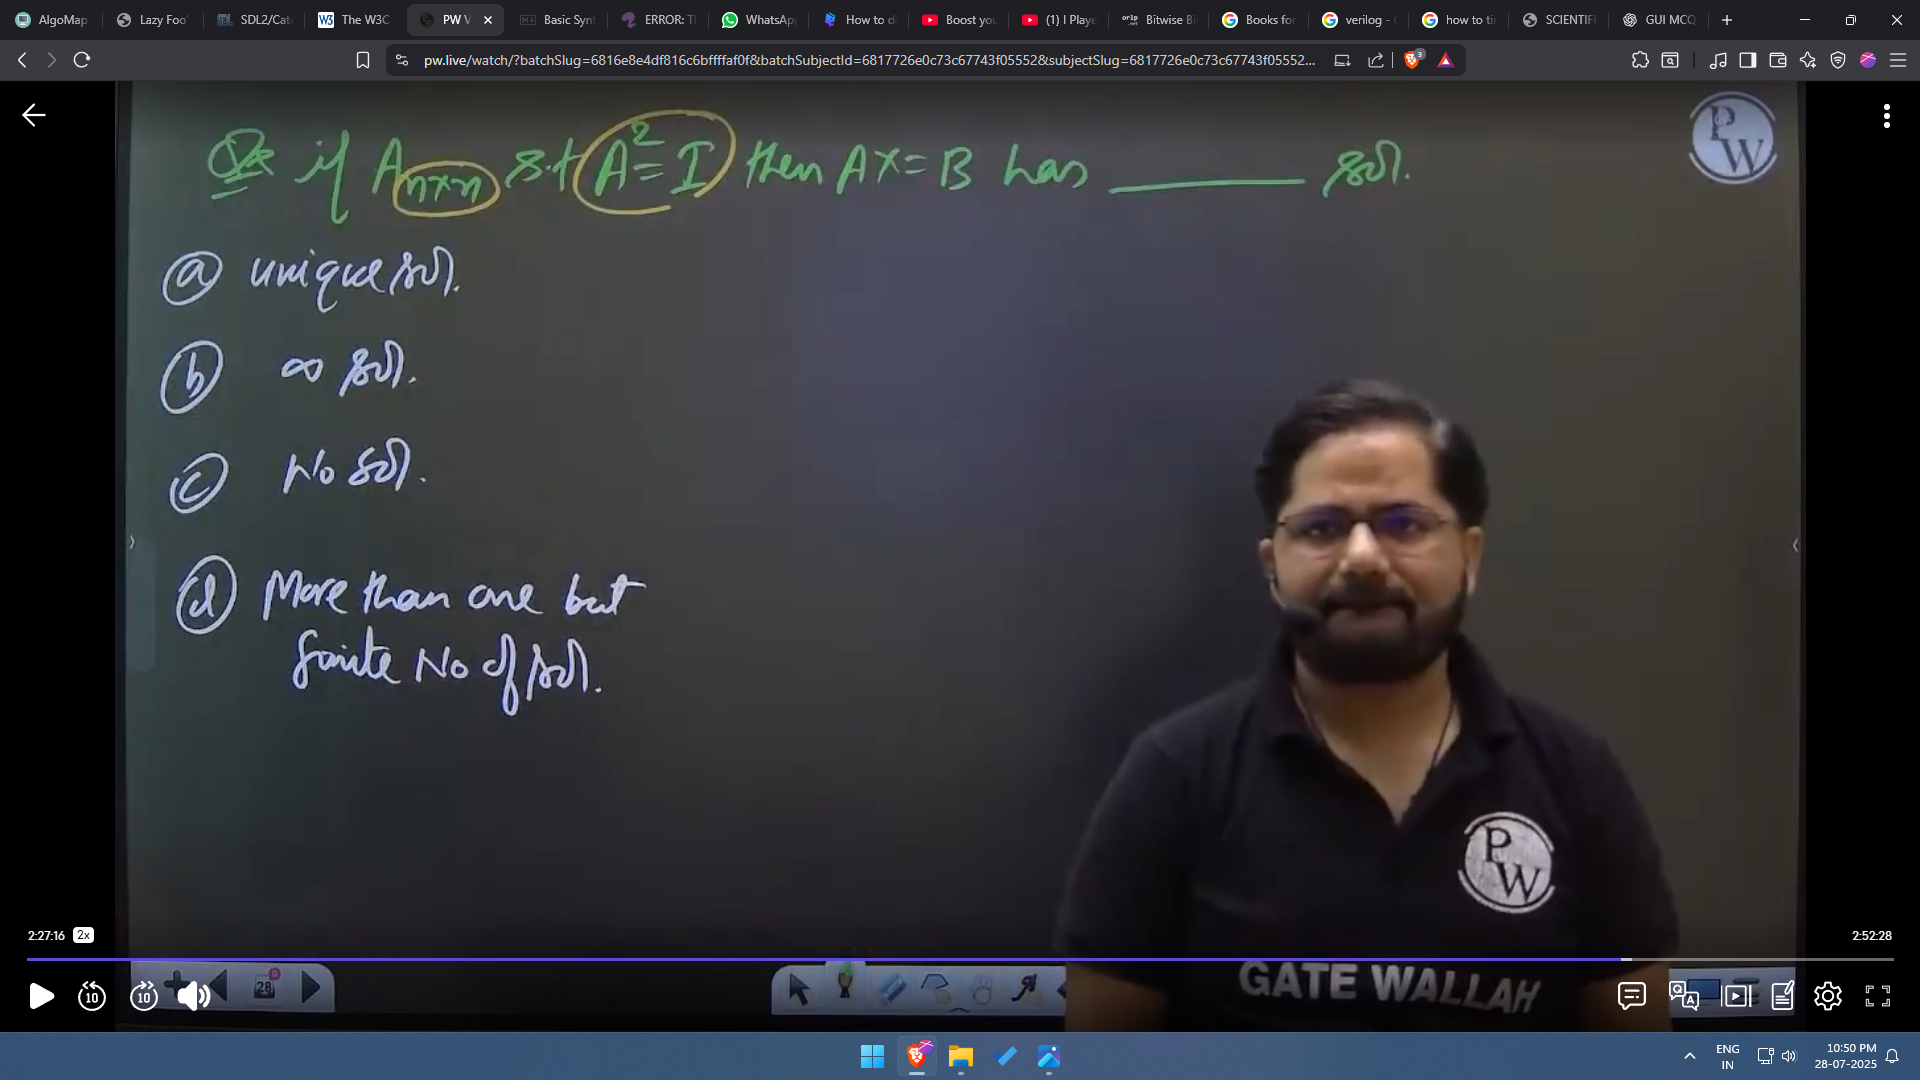 AlgoMap
Lazy Foo'
SDL2/Cat
The W3C
PW V
Basic Synt
ERROR: Th
WhatsApp
How to d
Boost you
(1) I Playe
Bitwise B
Books for
verilog -
how to ti
SCIENTIFI
GUI MCQ
pw.live/watch/?batchSlug=6816e8e4df816c6bffffaf0f&batchSubjectId=6817726e0c73c67743f05552&subjectSlug=6817726e0c73c67743f05552...
3
PW
Qs if A n×n s.t A² = I then AX = B has ______ sol.
(a) unique sol.
(b) ∞ sol.
(c) No sol.
(d) More than one but
finite No of sol.
PW
GATE WALLAH
2:27:16 2x
2:52:28
10
10
28
ENG
IN
10:50 PM
28-07-2025